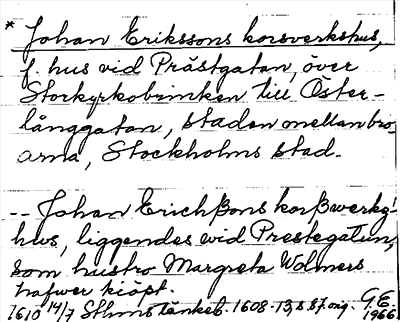 * Johan Erikssons korsverkshus,
f. hus vid Prästgatan, över
Storkyrkobrinken till Öster-
långgatan, staden mellan bro-
arna, Stockholms stad.
-- Johan Erichßons korßwerkz-
hws, liggendes wid Prestegatun,
som hustro Margreta Wolmers
hafwer kiöpt.
1610 14/7 Sthms tänkeb. 1608-13, s 87. orig. G.E.
1966.